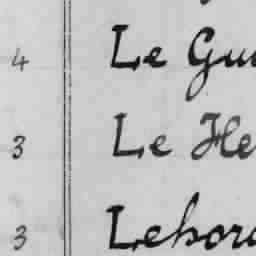 4 Le Gu
3 Le He
3 Lebor